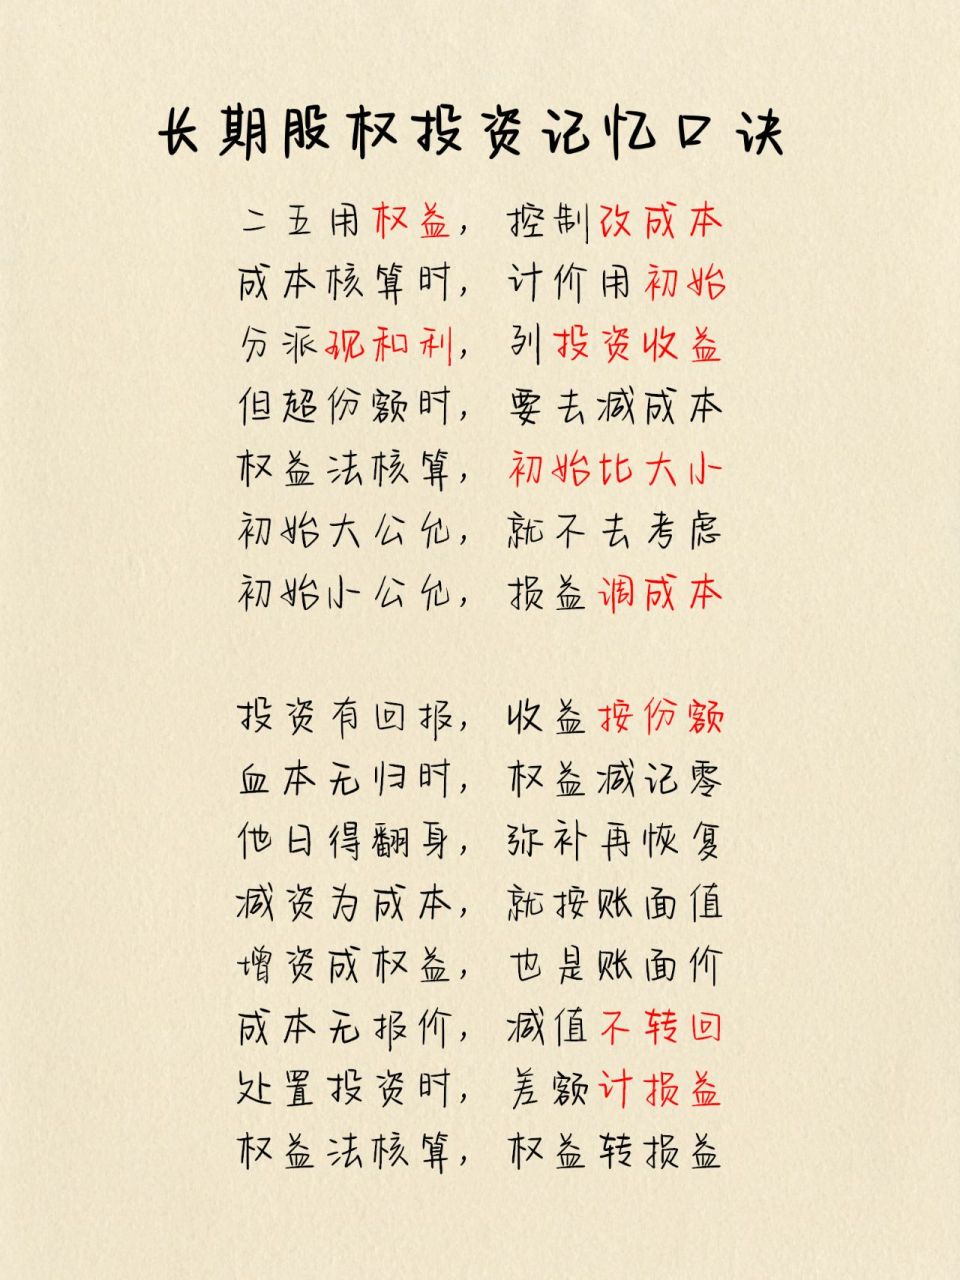 长期股权投资记忆口诀
二五用权益，控制改成本
成本核算时，计价用初始
分派现和利，列投资收益
但超份额时，要去减成本
权益法核算，初始比大小
初始大公允，就不去考虑
初始小公允，损益调成本
投资有回报，收益按份额
血本无归时，权益减记零
他日得翻身，弥补再恢复
减资为成本，就按账面值
增资成权益，也是账面价
成本无报价，减值不转回
处置投资时，差额计损益
权益法核算，权益转损益